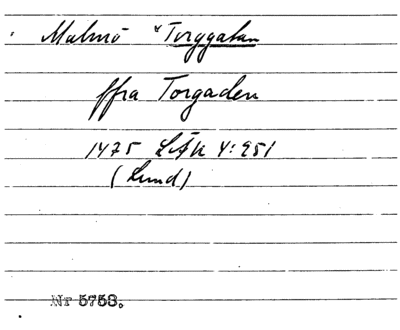 Malmö *Torggatan
ffra Torgaden
1475 LÄU 4:951
(Lund)
Nr 5758.